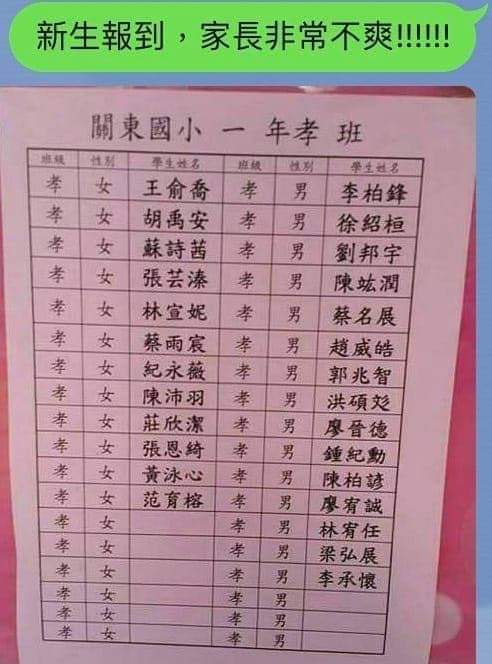 新生報到，家長非常不爽!!!!!!
關東國小 一 年孝 班
班級 性別 學生姓名 班級 性別 學生姓名
孝 女 王俞喬 孝 男 李柏鋒
孝 女 胡禹安 孝 男 徐紹桓
孝 女 蘇詩茜 孝 男 劉邦宇
孝 女 張芸溱 孝 男 陳竑潤
孝 女 林宣妮 孝 男 蔡名展
孝 女 蔡雨宸 孝 男 趙威皓
孝 女 紀永薇 孝 男 郭兆智
孝 女 陳沛羽 孝 男 洪碩彣
孝 女 莊欣潔 孝 男 廖晉德
孝 女 張恩綺 孝 男 鍾紀勳
孝 女 黃泳心 孝 男 陳柏諺
孝 女 范育榕 孝 男 廖宥誠
孝 女 孝 男 林宥任
孝 女 孝 男 梁弘展
孝 女 孝 男 李承懷
孝 女 孝 男
孝 女 孝 男
孝 女 孝 男